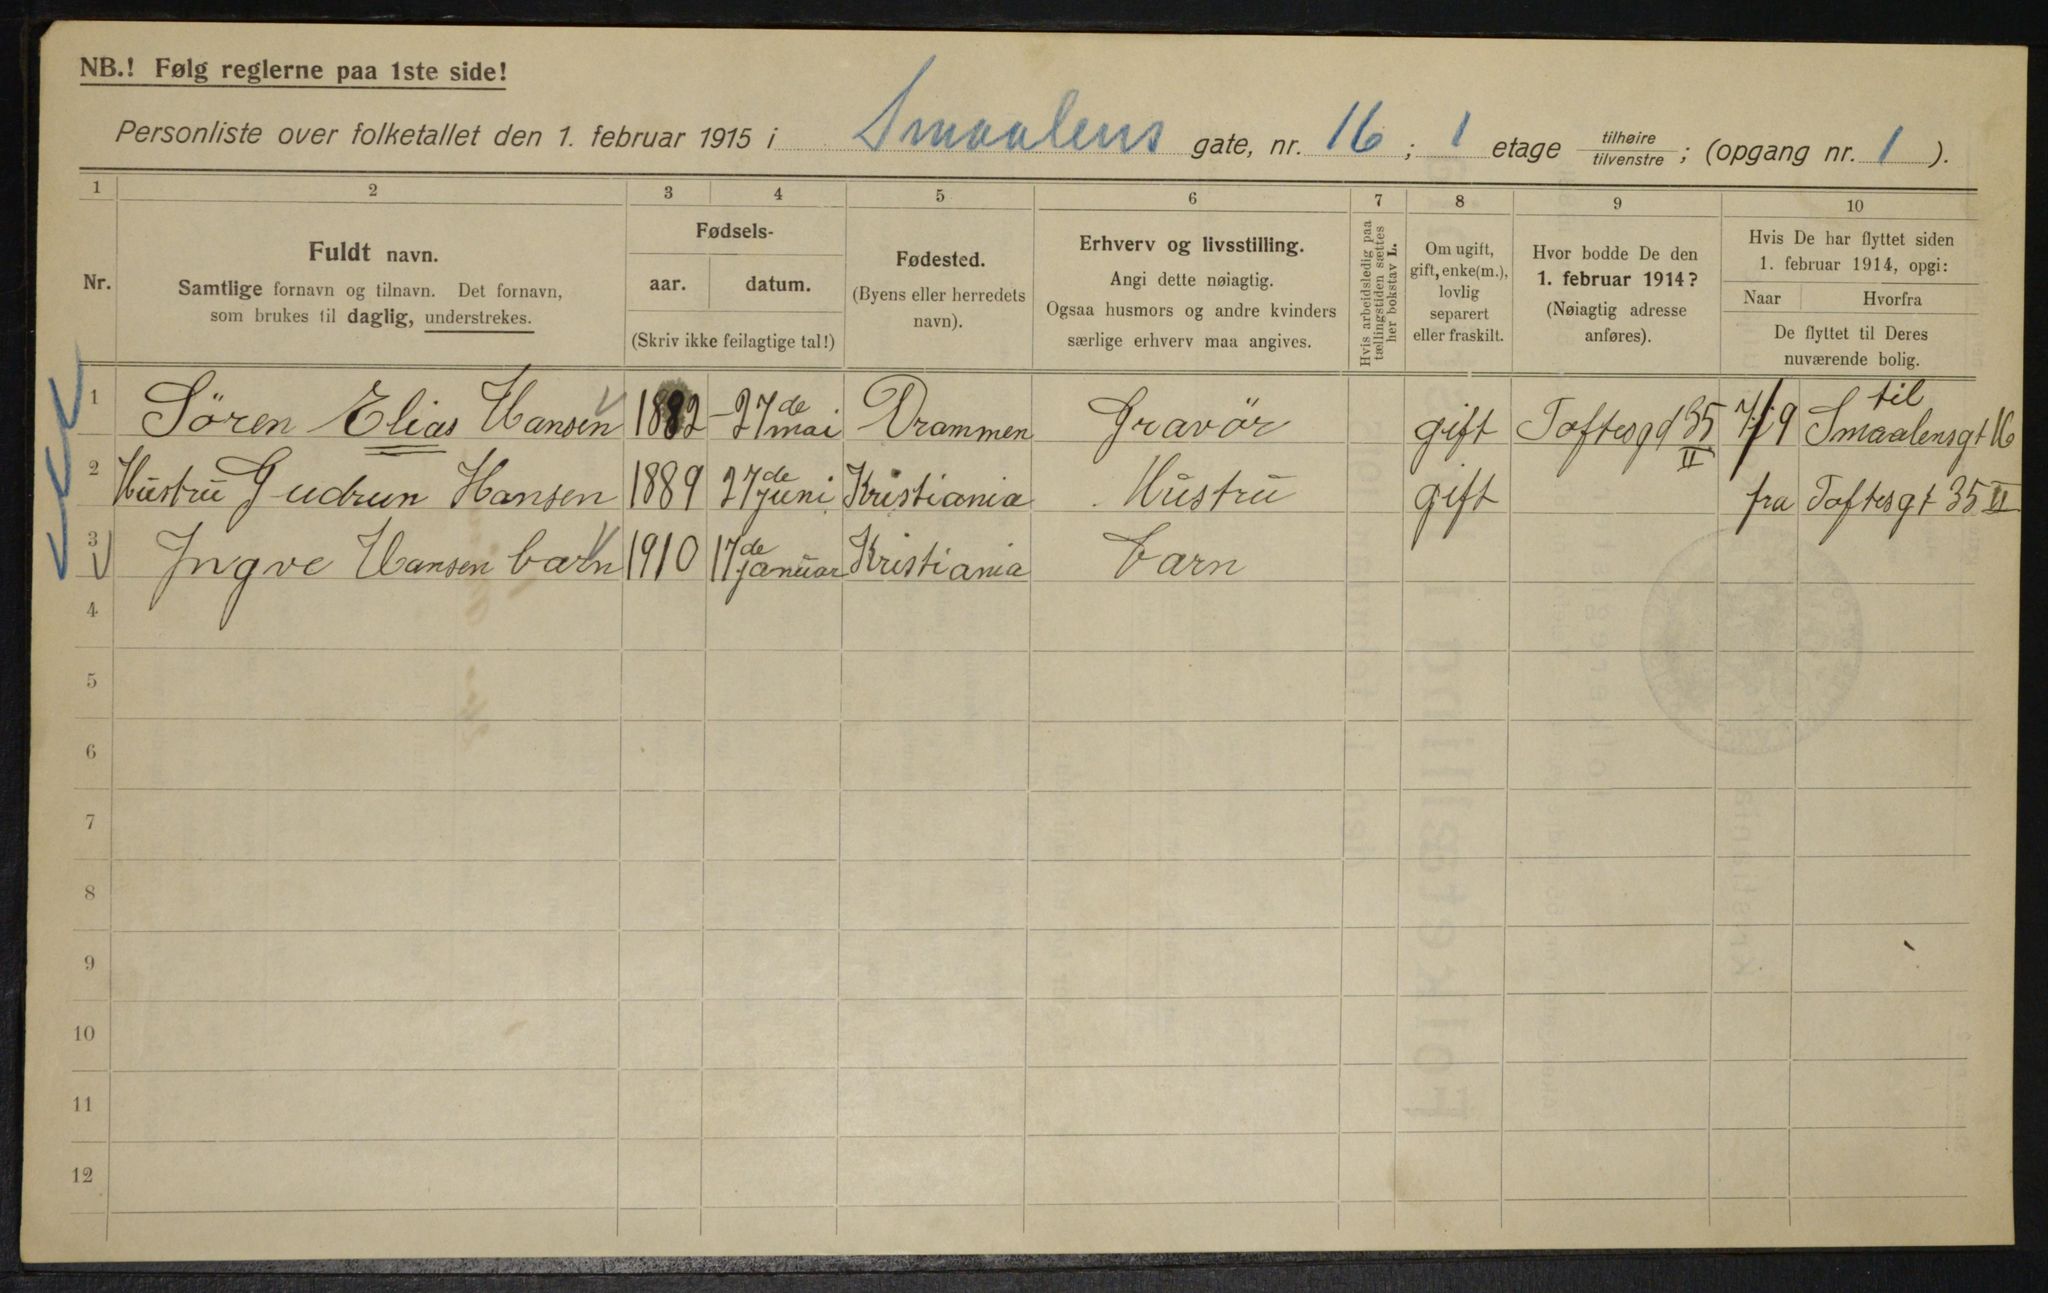 NB.! Følg reglerne paa 1ste side!
Personliste over folketallet den 1. februar 1915 i Smaalens gate, nr. 16; 1 etage tilhøire/tilvenstre; (opgang nr. 1).
1 2 3 4 5 6 7 8 9 10
Nr.
Fuldt navn.
Samtlige fornavn og tilnavn. Det fornavn,
som brukes til daglig, understrekes.
Fødsels-
aar. datum.
(Skriv ikke feilagtige tal!)
Fødested.
(Byens eller herredets
navn).
Erhverv og livsstilling.
Angi dette nøiagtig.
Ogsaa husmors og andre kvinders
særlige erhverv maa angives.
Hvis arbeidsledig paa
tællingstiden sættes
her bokstav L.
Om ugift,
gift, enke(m.),
lovlig
separert
eller fraskilt.
Hvor bodde De den
1. februar 1914?
(Nøiagtig adresse
anføres).
Hvis De har flyttet siden
1. februar 1914, opgi:
Naar Hvorfra
De flyttet til Deres
nuværende bolig.
1 Sören Elias Hansen 1882 27de mai Drammen Gravör gift Toftesgd 35 II 7/9 til Smaalensgt 16
2 Hustru Gudrun Hansen 1889 27de juni Kristiania Hustru gift fra Toftesgt 35 II
3 Ingve Hansen barn 1910 17de januar Kristiania barn
4
5
6
7
8
9
10
11
12